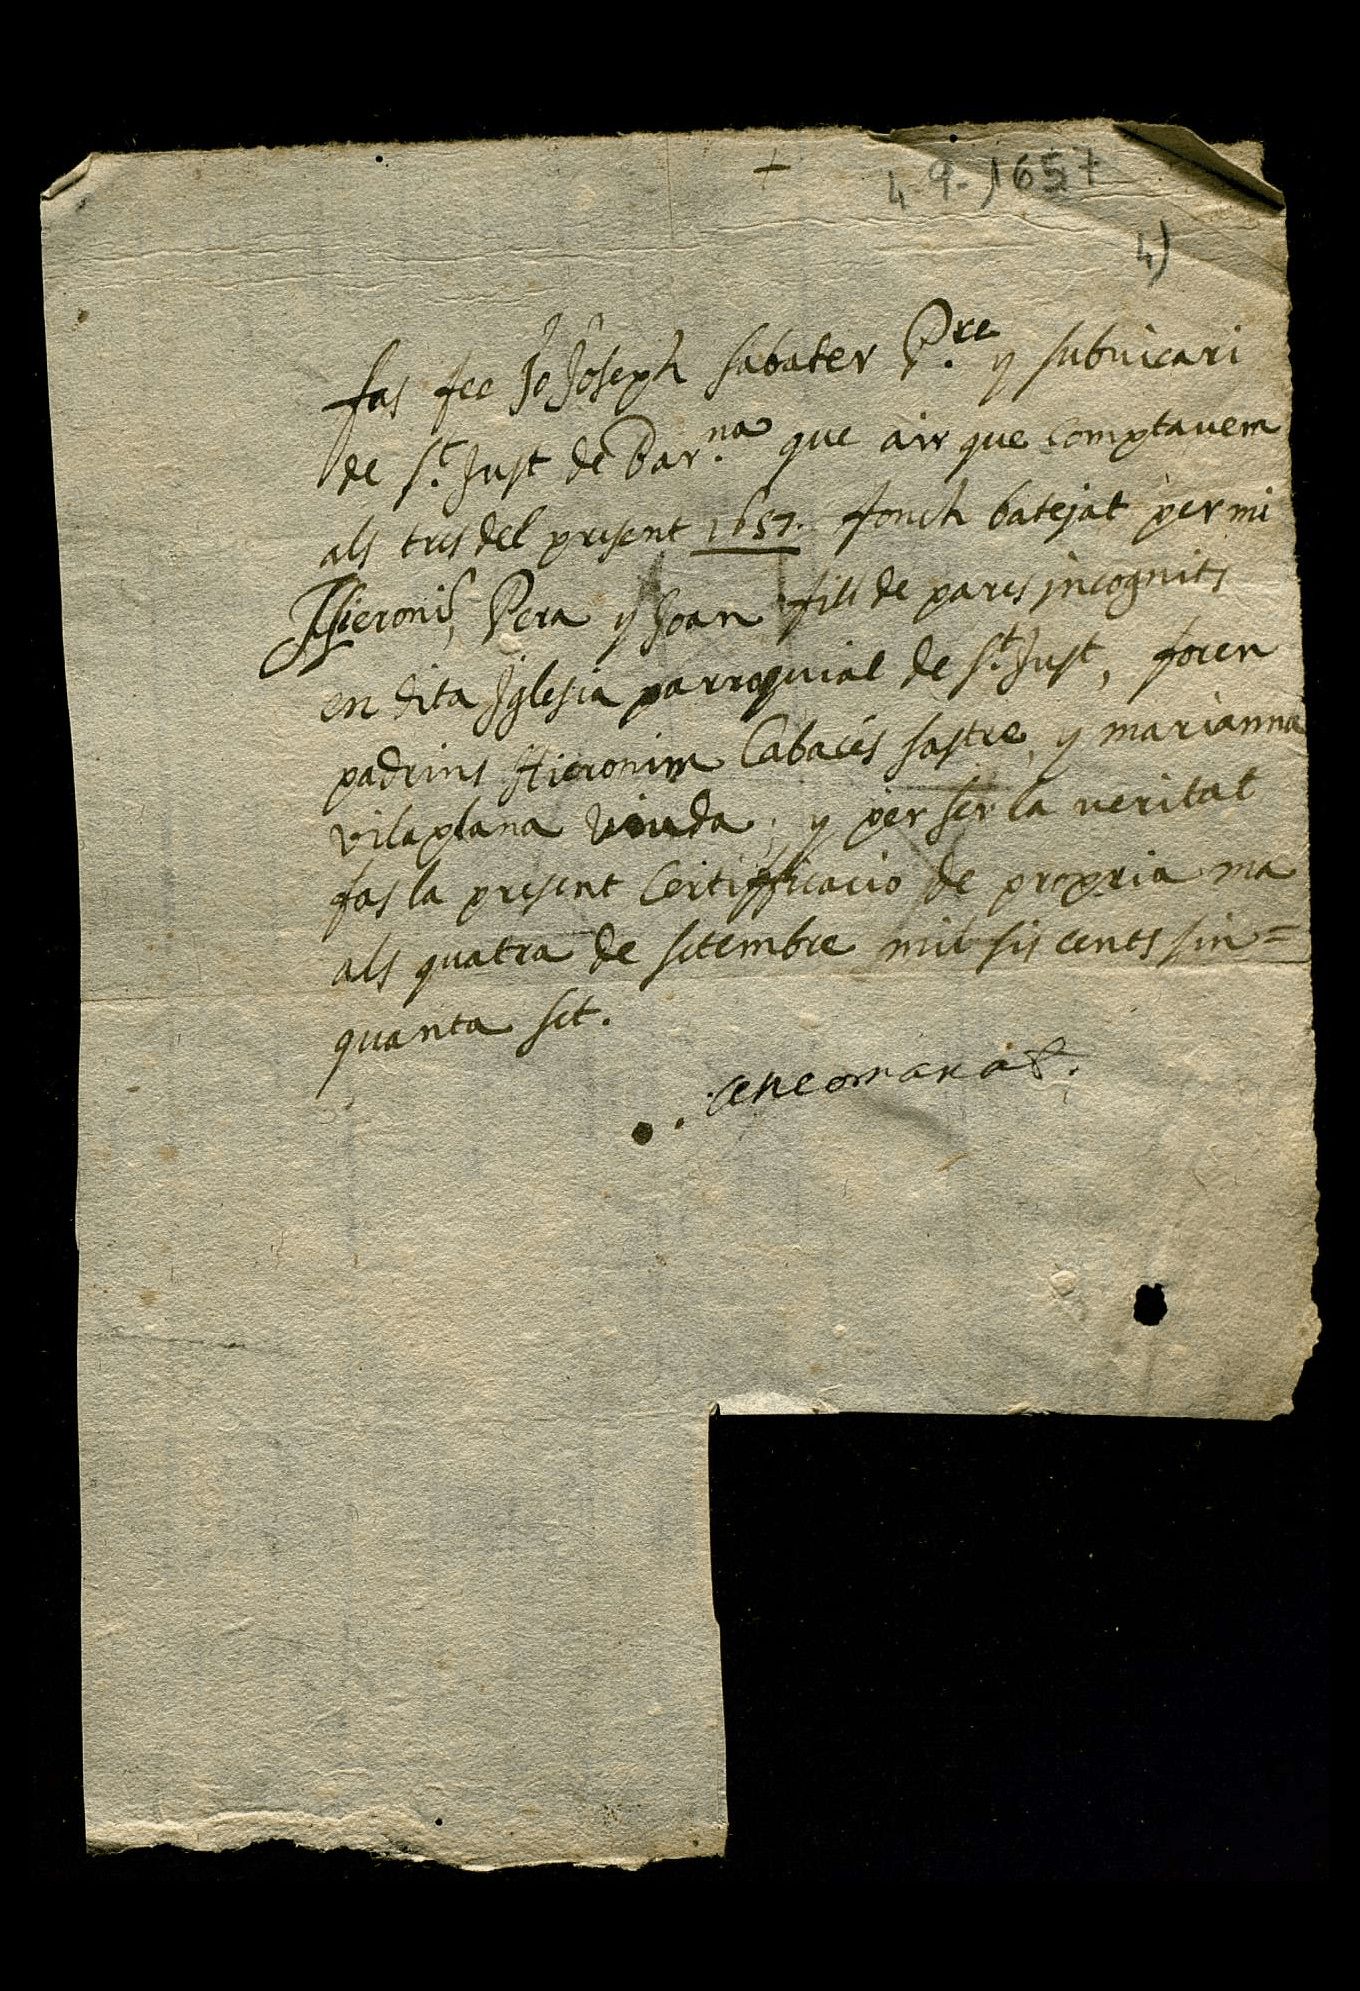 +
4 9. 1657
4)
fas fee Jo Joseph sabater P.re y subuicari
de St. Just de Bar.na que air que comptauem
als tres del present 1657. fonch batejat per mi
Hieroni, Pera y Joan fill de pares incognits
en dita Iglesia parroquial de St. Just, foren
padrins Hieronim Cabaces sastre, y marianna
vilaplana viuda, y per ser la veritat
fas la present Certifficacio de propria ma
als quatra de setembre mil sis cents sin=
quanta set.